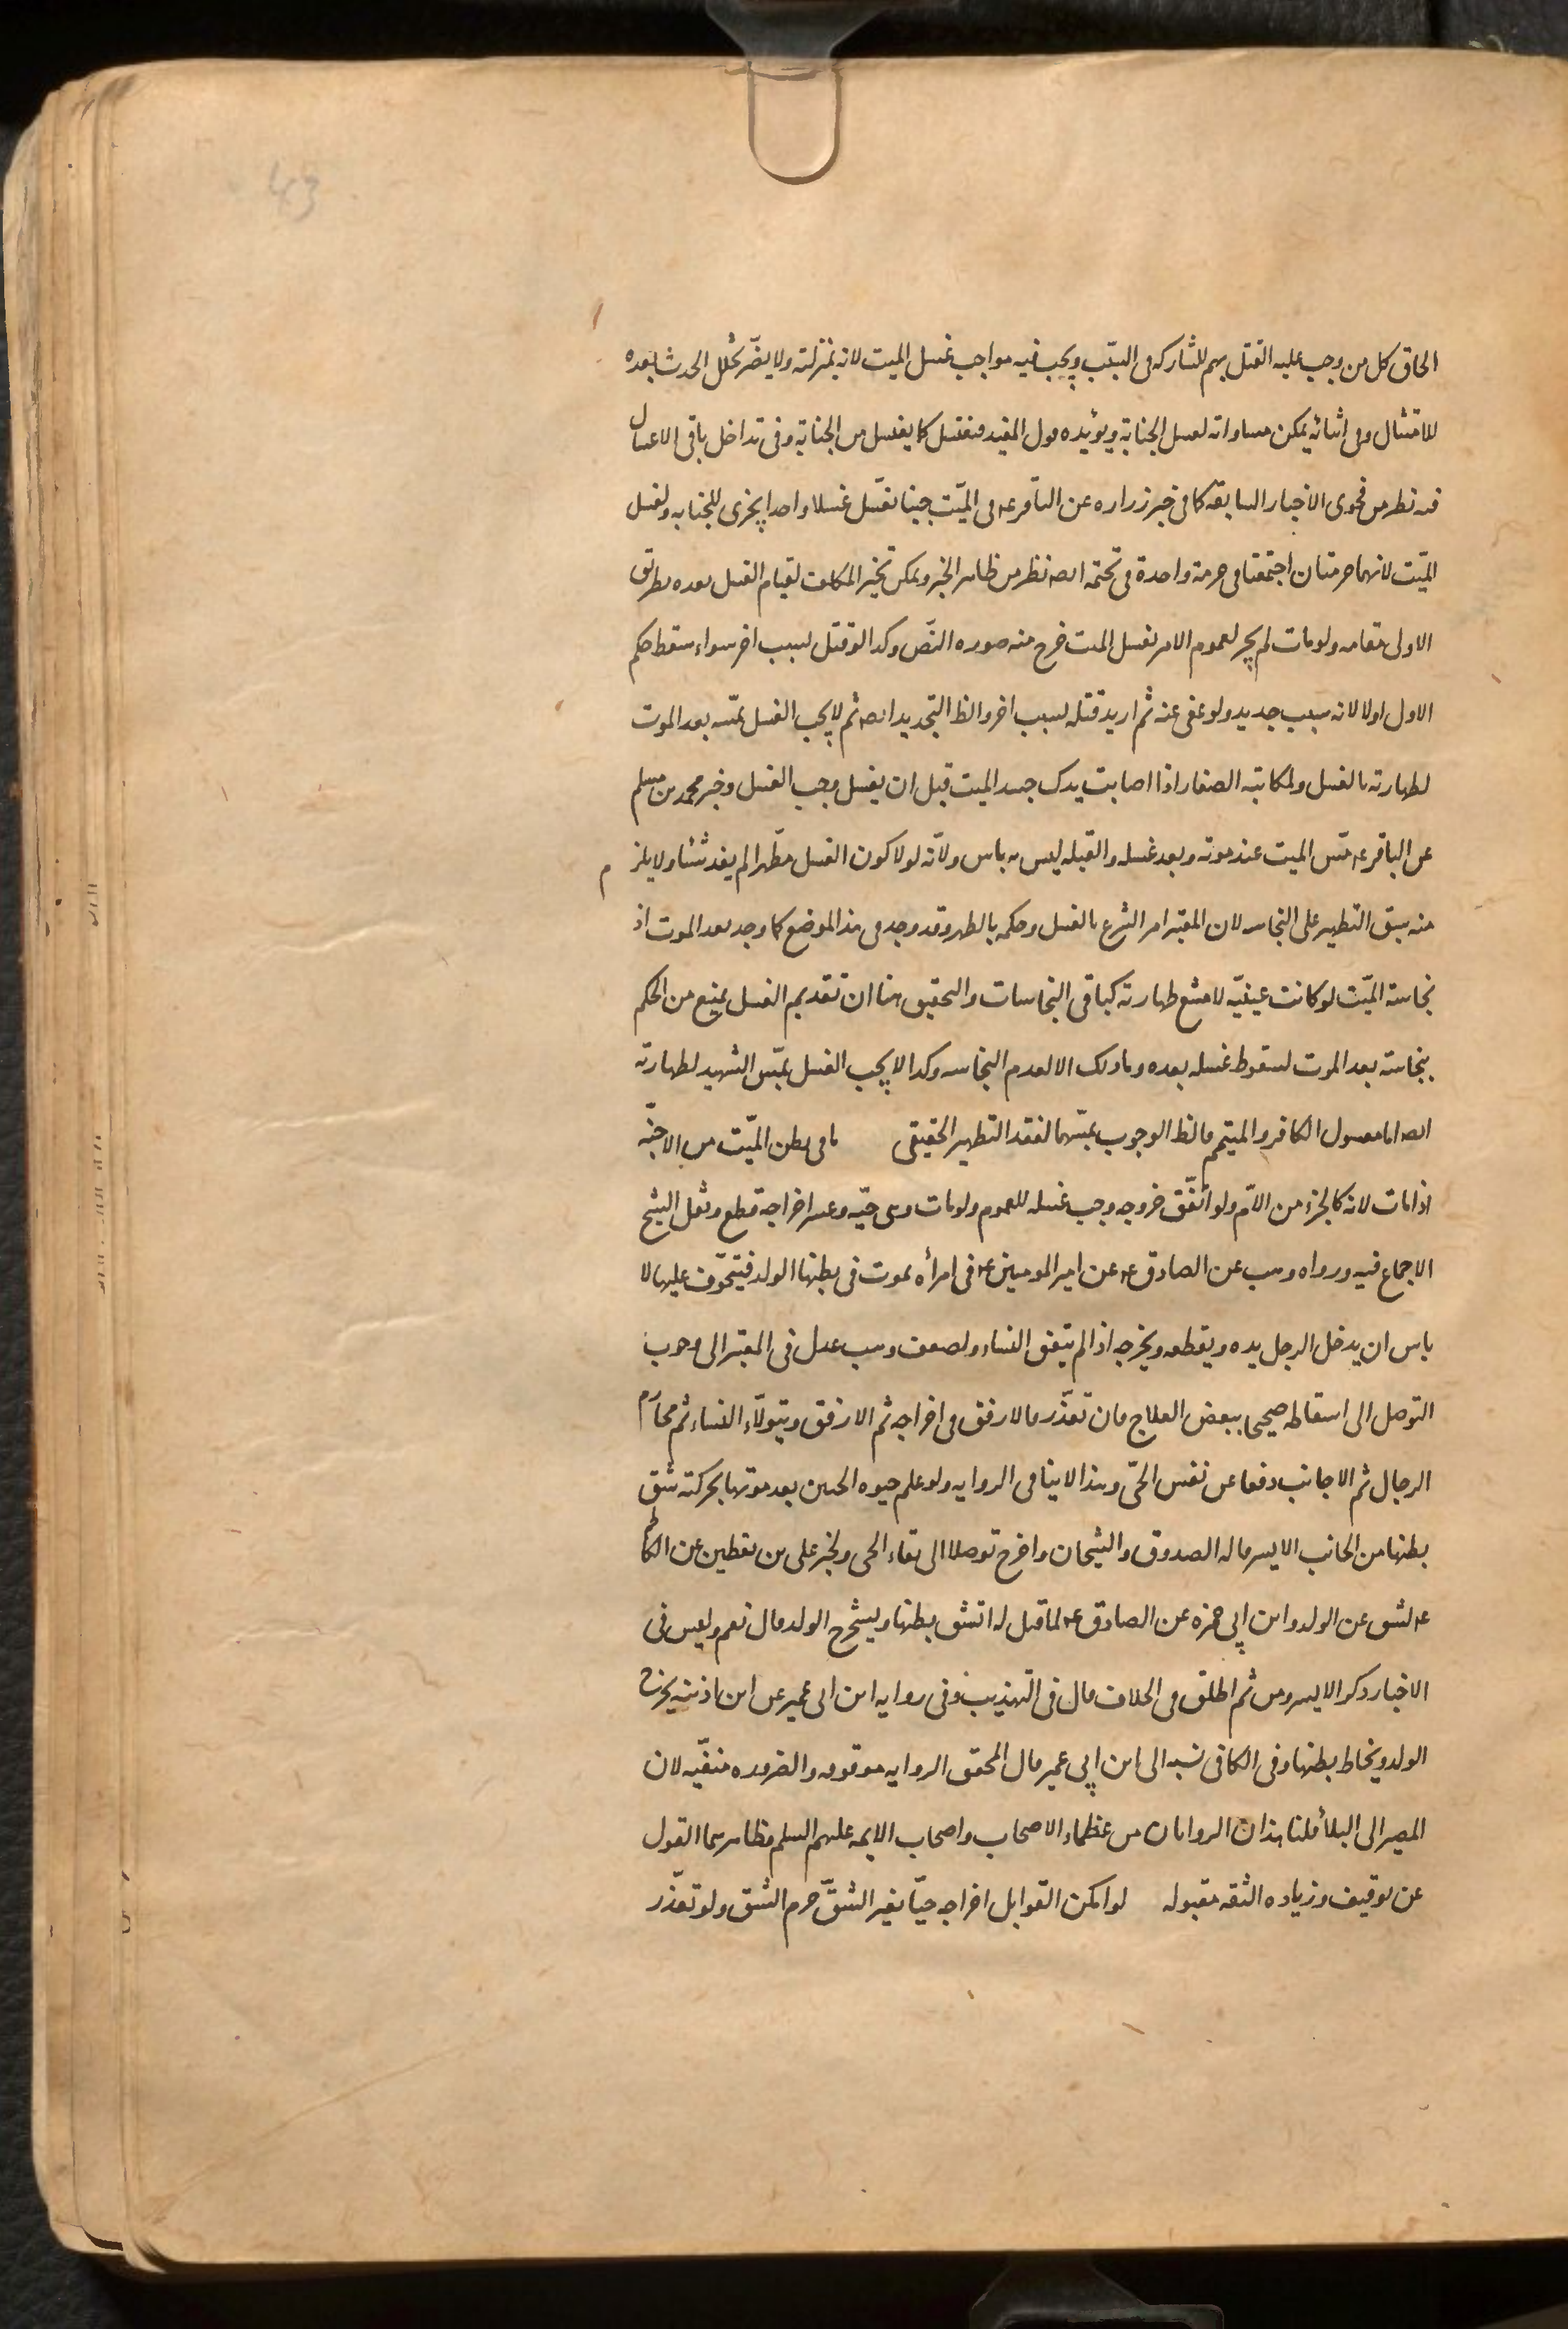 الحاق كل من وجب عليه القتل بهم للمشاركه فى السبب ويجب فيه مواجب غسل الميت لانه بمنزلته ولا يضر تخلل الحدث بعده
للامتثال وفى اثنائه يمكن مساواته لغسل الجنابة ويؤيده قول المفيد فيغتسل كما يغتسل من الجنابة وفى تداخل باقى الاغسال
فيه نظر من فحوى الاخبار السابقة كما فى خبر زراره عن الباقر ع فى الميّت جنبا يغسّل غسلا واحدا يجزى للجنابه ولغسل
الميّت لانهما حرمتان اجتمعتا فى حرمة واحدة فى تحتمه ايضا نظر من ظاهر الخبر ويمكن تخيير المكلف لقيام الغسل بعده بطريق
الاولى مقامه ولو مات لم يجز لعموم الامر بغسل الميت خرج منه صوره النصّ وكذا لو قتل لسبب اخر سواء سقط حكم
الاول اولا لانه سبب جديد ولو عفى عنه ثم اريد قتله لسبب اخر والظ التجديد ايضا ثم لا يجب الغسل بمسّه بعد الموت
لطهارته بالغسل ولمكاتبة الصفار اذا اصابت يدك جسد الميت قبل ان يغسل وجب الغسل وخبر محمد بن مسلم
عن الباقر ع مسّ الميت عند موته وبعد غسله والقبله ليس به باس ولانّه لولا كون الغسل مطهّرا لم يفد شئا ولا يلزم
منه سبق التطهير على النجاسه لان المعتبر امر الشرع بالغسل وحكمه بالطهر وقد وجد فى هذا الموضع كما وجد بعد الموت اذ
نجاسة الميّت لو كانت عينيّه لامتنع طهارته كباقى النجاسات والتحقيق هنا ان تقديم الغسل يمنع من الحكم
بنجاسته بعد الموت لسقوط غسله بعده وما ذلك الا لعدم النجاسه وكذا لا يجب الغسل بمسّ الشهيد لطهارته
ايضا اما مغسول الكافر والميتمم فالظ الوجوب بمسّهما لفقد التطهير الحقيقى ما فى بطن الميّت من الاجنّه
اذا مات لانه كالجزء من الامّ ولو اتّفق خروجه وجب غسله للعموم ولو مات وهى حيّه وعسر اخراجه قطع ونقل الشيخ
الاجماع فيه ورواه وهب عن الصادق ع عن امير المومنين ع فى امرأه يموت فى بطنها الولد فيتخوّف عليها لا
باس ان يدخل الرجل يده ويقطعه ويخرجه اذا لم يتفق النساء ولضعف وهب عدل فى المعتبر الى وجوب
التوصل الى اسقاطه صحيحا ببعض العلاج فان تعذّر فالارفق فى اخراجه ثم الارفق ويتولّاه النساء ثم محارم
الرجال ثم الاجانب دفعا عن نفس الحىّ وهذا لا ينافى الروايه ولو علم حيوه الجنين بعد موتها بحركته شق
بطنها من الجانب الايسر قاله الصدوق والشيخان واخرج توصلا الى بقاء الحى ولخبر على بن يقطين عن الكاظم
ع لشق عن الولد وابن ابى حمزه عن الصادق ع لما قيل له اتشق بطنها ويستخرج الولد قال نعم وليس فى
الاخبار ذكر الايسر ومن ثم اطلق فى الخلاف قال فى التهذيب وفى روايه ابن ابى عمير عن ابن اذينه يخرج
الولد ويخاط بطنها وفى الكافى نسبه الى ابن ابى عمير قال المحقق الروايه موقوفه والضروره منفيّه لان
المصير الى البلأ قلنا هذان الراويان من عظماء الاصحاب واصحاب الايمه عليهم السلم فظاهرهما القول
عن توقيف وزياده الثقه مقبوله لو امكن القوابل اخراجه حيّا بغير الشقّ حرم الشق ولو تعذّر